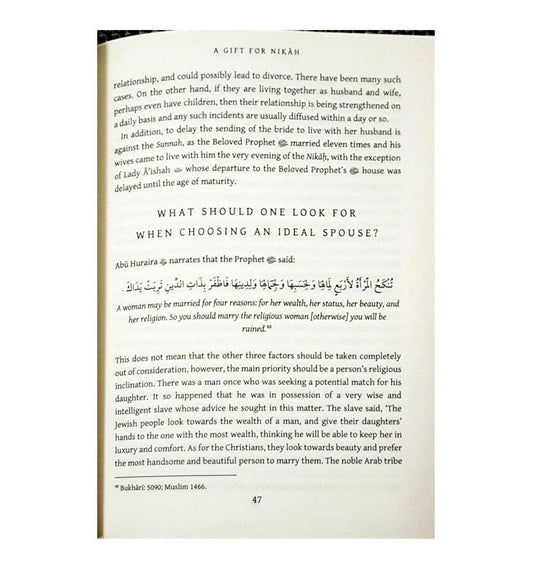 A GIFT FOR NIKĀH
relationship, and could possibly lead to divorce. There have been many such
cases. On the other hand, if they are living together as husband and wife,
perhaps even have children, then their relationship is being strengthened on
a daily basis and any such incidents are usually diffused within a day or so.
In addition, to delay the sending of the bride to live with her husband is
against the Sunnah, as the Beloved Prophet ﷺ married eleven times and his
wives came to live with him the very evening of the Nikāḥ, with the exception
of Lady Ā'ishah whose departure to the Beloved Prophet's ﷺ house was
delayed until the age of maturity.
WHAT SHOULD ONE LOOK FOR
WHEN CHOOSING AN IDEAL SPOUSE?
Abū Huraira narrates that the Prophet ﷺ said:
تُنْكَحُ الْمَرْأَةُ لِأَرْبَعٍ لِمَالِهَا وَلِحَسَبِهَا وَلِجَمَالِهَا وَلِدِينِهَا فَاظْفَرْ بِذَاتِ الدِّينِ تَرِبَتْ يَدَاكَ .
A woman may be married for four reasons: for her wealth, her status, her beauty, and
her religion. So you should marry the religious woman [otherwise] you will be
ruined.⁶³
This does not mean that the other three factors should be taken completely
out of consideration, however, the main priority should be a person's religious
inclination. There was a man once who was seeking a potential match for his
daughter. It so happened that he was in possession of a very wise and
intelligent slave whose advice he sought in this matter. The slave said, 'The
Jewish people look towards the wealth of a man, and give their daughters'
hands to the one with the most wealth, thinking he will be able to keep her in
luxury and comfort. As for the Christians, they look towards beauty and prefer
the most handsome and beautiful person to marry them. The noble Arab tribe
Bukhārī: 5090; Muslim 1466.
47